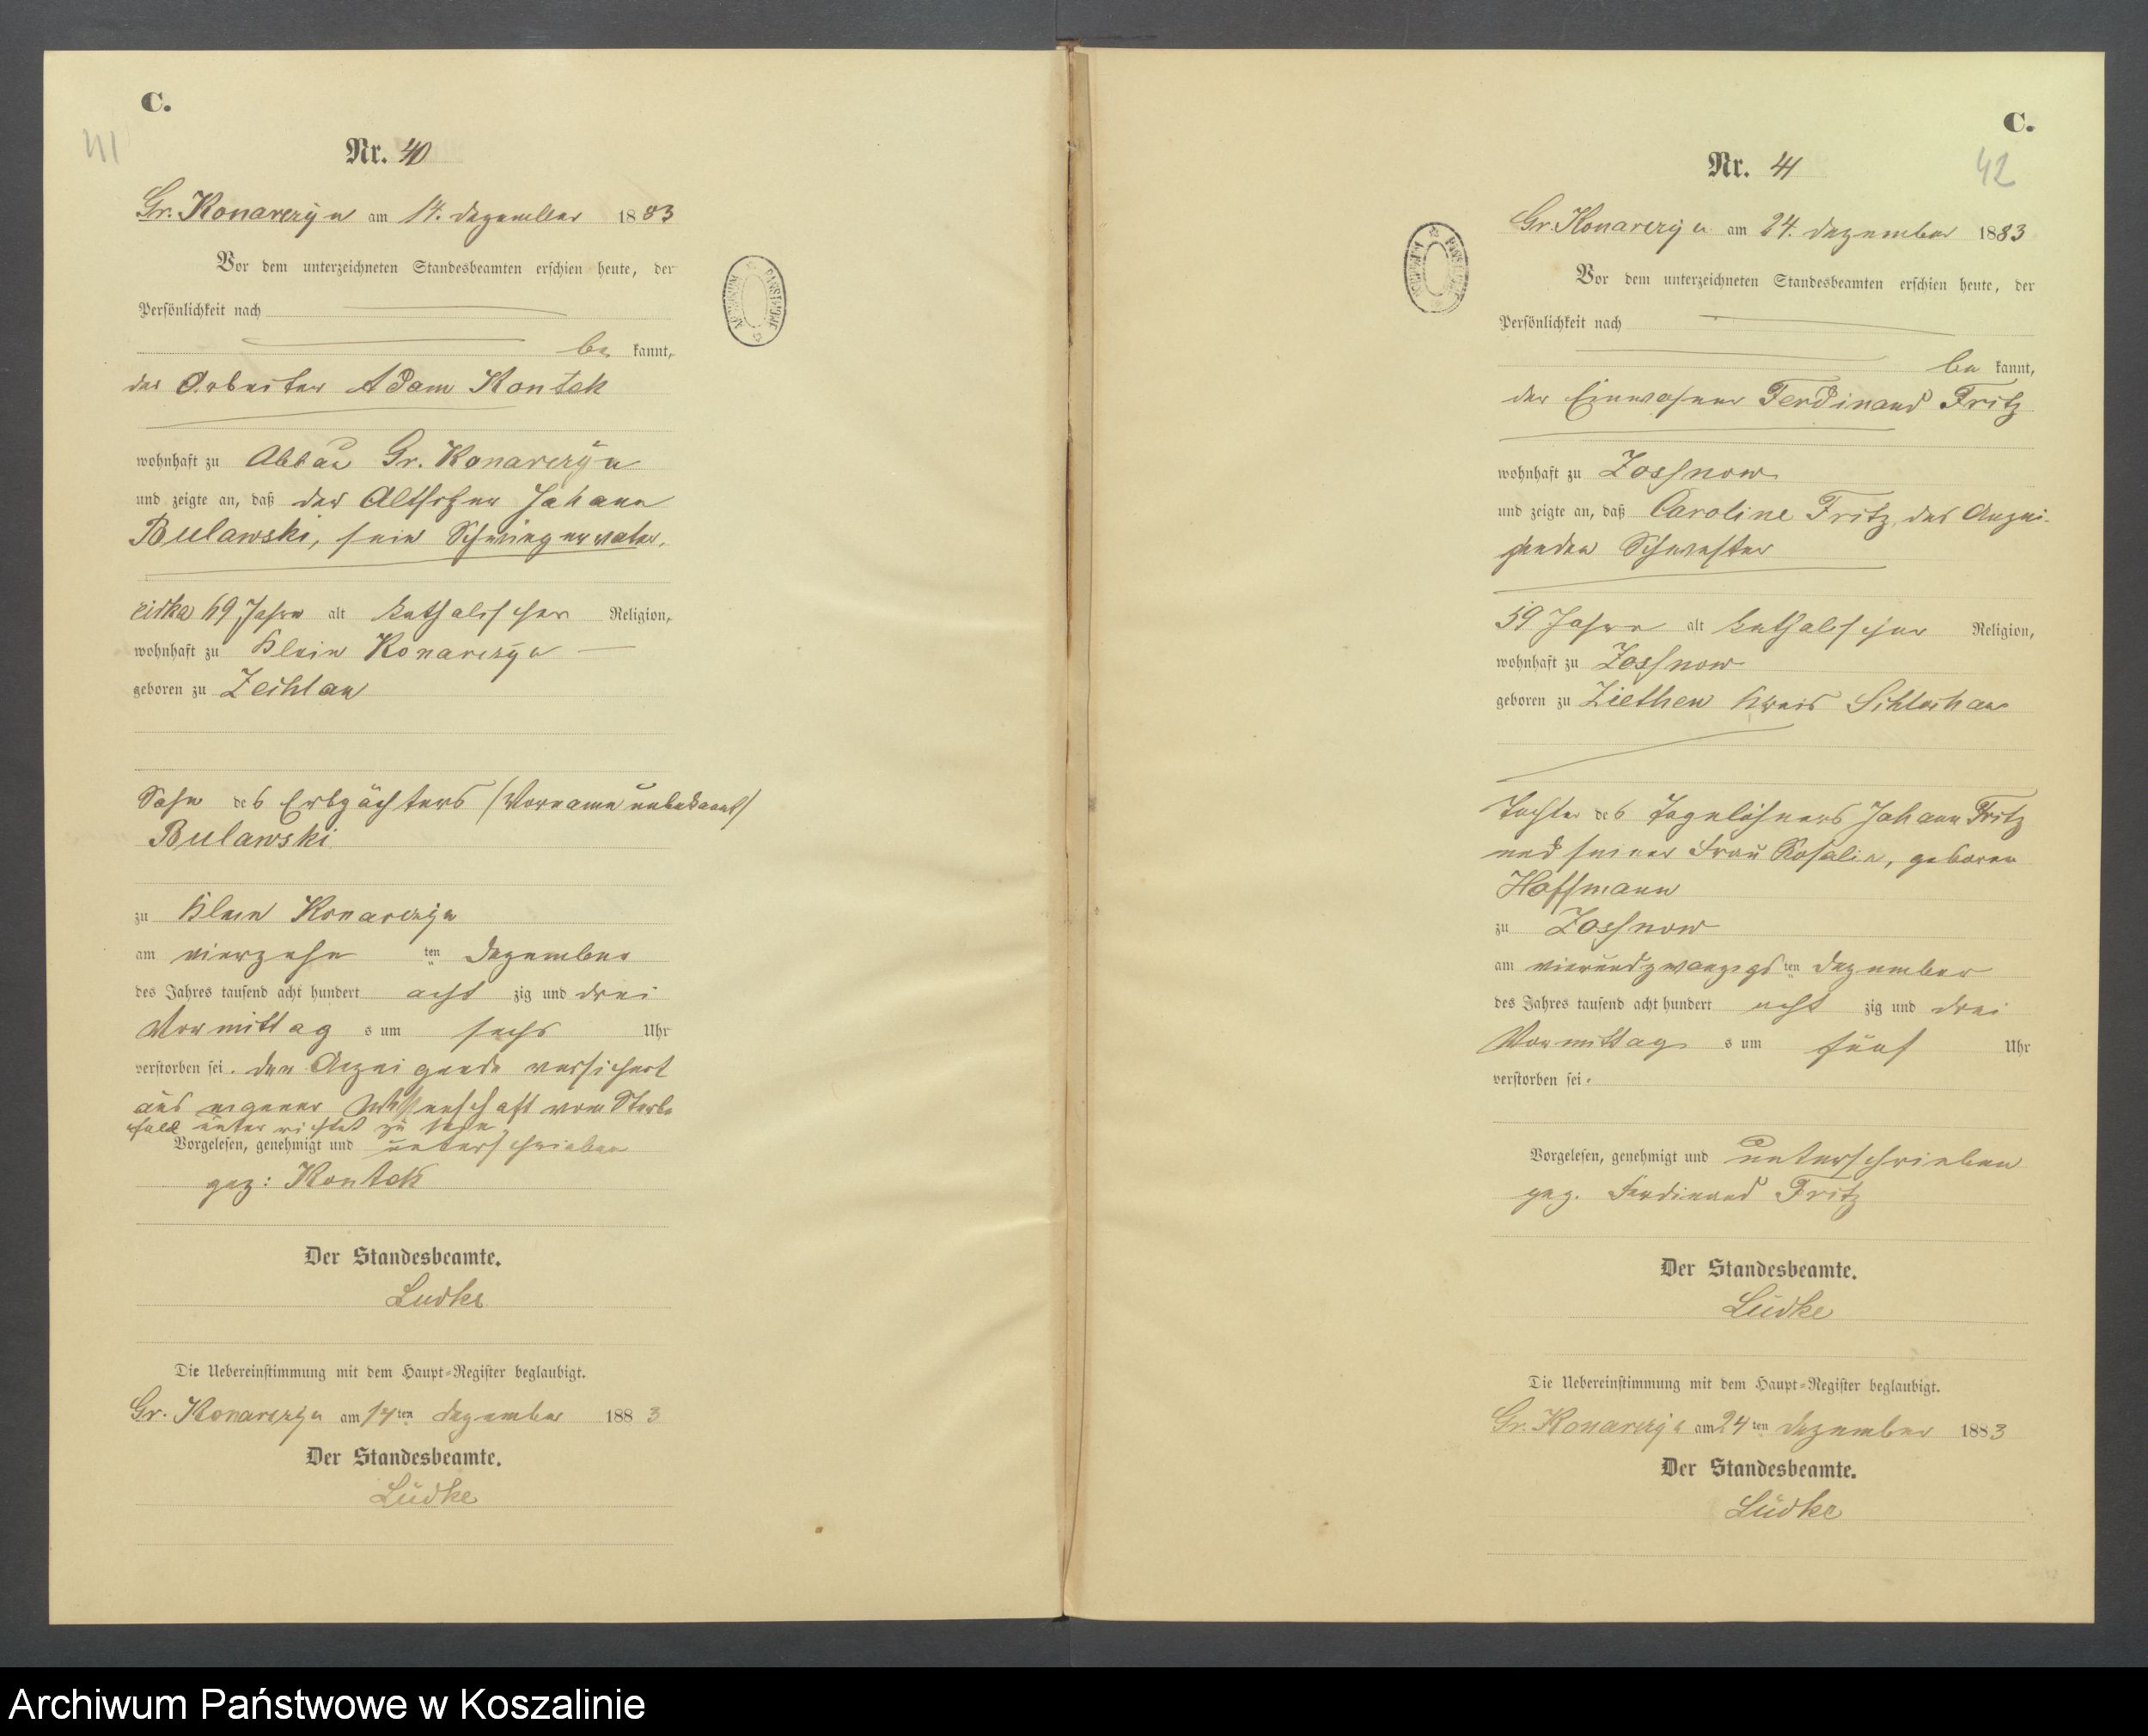 C.
41
Nr. 40
Gr. Konarczyn am 14. Dezember 1883
Vor dem unterzeichneten Standesbeamten erschien heute, der
Persönlichkeit nach
be kannt,
der Arbeiter Adam Kontek
wohnhaft zu Abbau Gr. Konarczyn
und zeigte an, daß der Altsitzer Johann
Bulawski, sein Schwiegervater,
circa 69 Jahre alt katholischer Religion,
wohnhaft zu Klein Konarczyn
geboren zu Zechlau
Sohn des Erbpächters (Vorname unbekannt)
Bulawski
zu Klein Konarczyn
am vierzehn ten Dezember
des Jahres tausend acht hundert acht zig und drei
Vormittag s um sechs Uhr
verstorben sei. Der Anzeigende versichert
aus eigener Wissenschaft vom Sterbe
fall unterrichtet zu sein
Vorgelesen, genehmigt und unterschrieben
gez: Kontek
Der Standesbeamte.
Lüdke
Die Uebereinstimmung mit dem Haupt-Register beglaubigt.
Gr. Konarczyn am 14ten Dezember 1883
Der Standesbeamte.
Lüdke
C.
42
Nr. 41
Gr. Konarczyn am 24. Dezember 1883
Vor dem unterzeichneten Standesbeamten erschien heute, der
Persönlichkeit nach
be kannt,
der Einwohner Ferdinand Fritz
wohnhaft zu Zossnow
und zeigte an, daß Caroline Fritz, des Anzei-
genden Schwester
59 Jahre alt katholischer Religion,
wohnhaft zu Zossnow
geboren zu Ziethen Kreis Schlochau
Tochter des Tagelöhners Johann Fritz
und seiner Frau Rosalie, geboren
Hoffmann
zu Zossnow
am vierundzwanzigsten Dezember
des Jahres tausend acht hundert acht zig und drei
Vormittag s um fünf Uhr
verstorben sei.
Vorgelesen, genehmigt und unterschrieben
gez. Ferdinand Fritz
Der Standesbeamte.
Lüdke
Die Uebereinstimmung mit dem Haupt-Register beglaubigt.
Gr. Konarczyn am 24ten Dezember 1883
Der Standesbeamte.
Lüdke
Archiwum Państwowe w Koszalinie